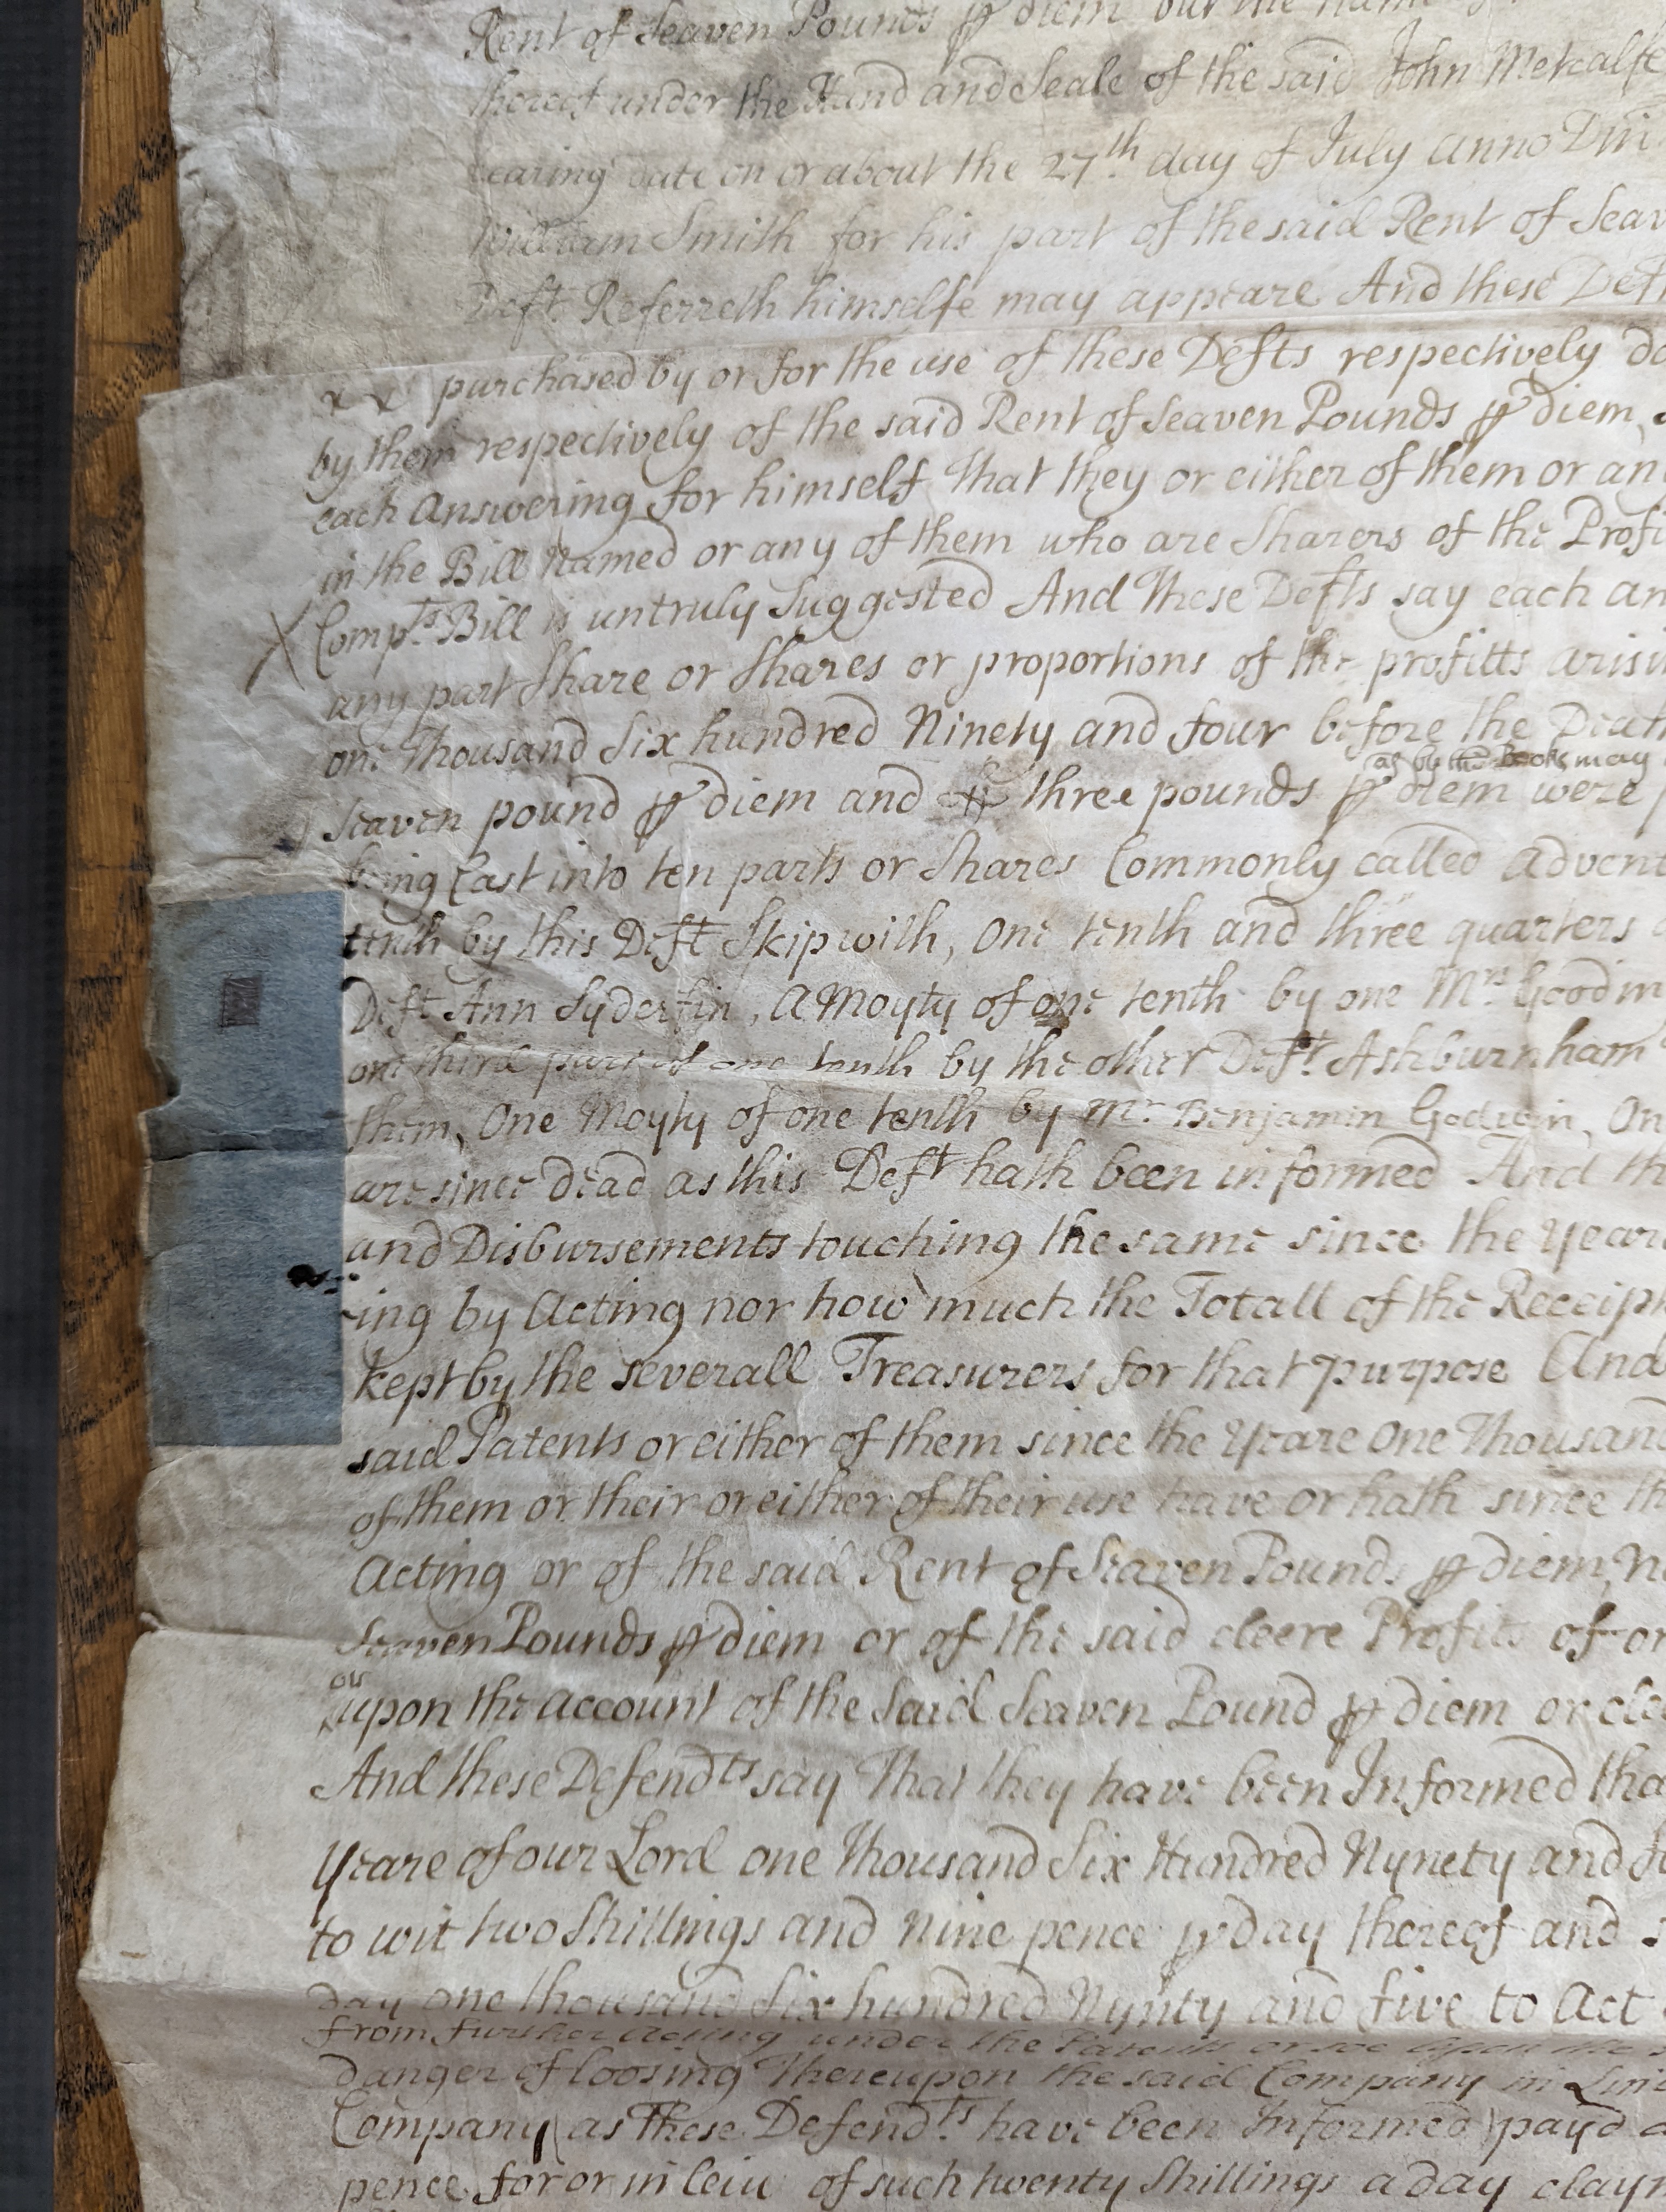 Rent of Seaven Pounds ꝑ diem but the
thereof under the Hand and Seale of the said John Metcalfe
bearing date on or about the 27th. day of July anno Dni
William Smith for his part of the said Rent of Seav
Deft. Referreth himselfe may appeare And these Deft
x x purchased by or for the use of these Defts respectively do
by them respectively of the said Rent of Seaven Pounds ꝑ diem
each Answering for himself That they or either of them or an
in the Bill Named or any of them who are Sharers of the Profi
Compts. Bill is untruly Suggested And These Defts say each an
any part Share or Shares or proportions of the profitts arisi
one Thousand Six hundred Ninety and four before the Death
as by the Books may
Seaven pound ꝑ diem and three pounds ꝑ diem were p
being Cast into ten parts or Shares Commonly called Advent
tenth by this Deft Skipwith, One tenth and three quarters
Deft Ann Syderfin, A Moyty of one tenth by one Mrs Goodm
one third part of one tenth by the other Deft. Ashburnham
them, One Moyty of one tenth by Mr. Benjamin Godwin, On
are since dead as this Deft hath been informed And th
and Disbursements touching the same since the Yeare
-ing by Acting nor how much the Totall of the Receipt
kept by the severall Treasurers for that purpose And
said Patents or either of them since the Yeare One Thousand
of them or their or either of their use have or hath since th
Acting or of the said Rent of Seaven Pounds ꝑ diem, N
Seaven Pounds ꝑ diem or of the said cleere Profits of or
or
upon the account of the Said Seaven Pound ꝑ diem or cle
And these Defendts say That they have been Informed tha
Yeare of our Lord one Thousand Six Hundred Nynety and
to wit two Shillings and Nine pence ꝑ day thereof and
day one thousand Six hundred Nynty and five to Act
from further acting under the Patents or
danger of loosing Thereupon the said Company in
Company as These Defendts. have been Informed payd
pence for or in leiu of such twenty Shillings a day claym